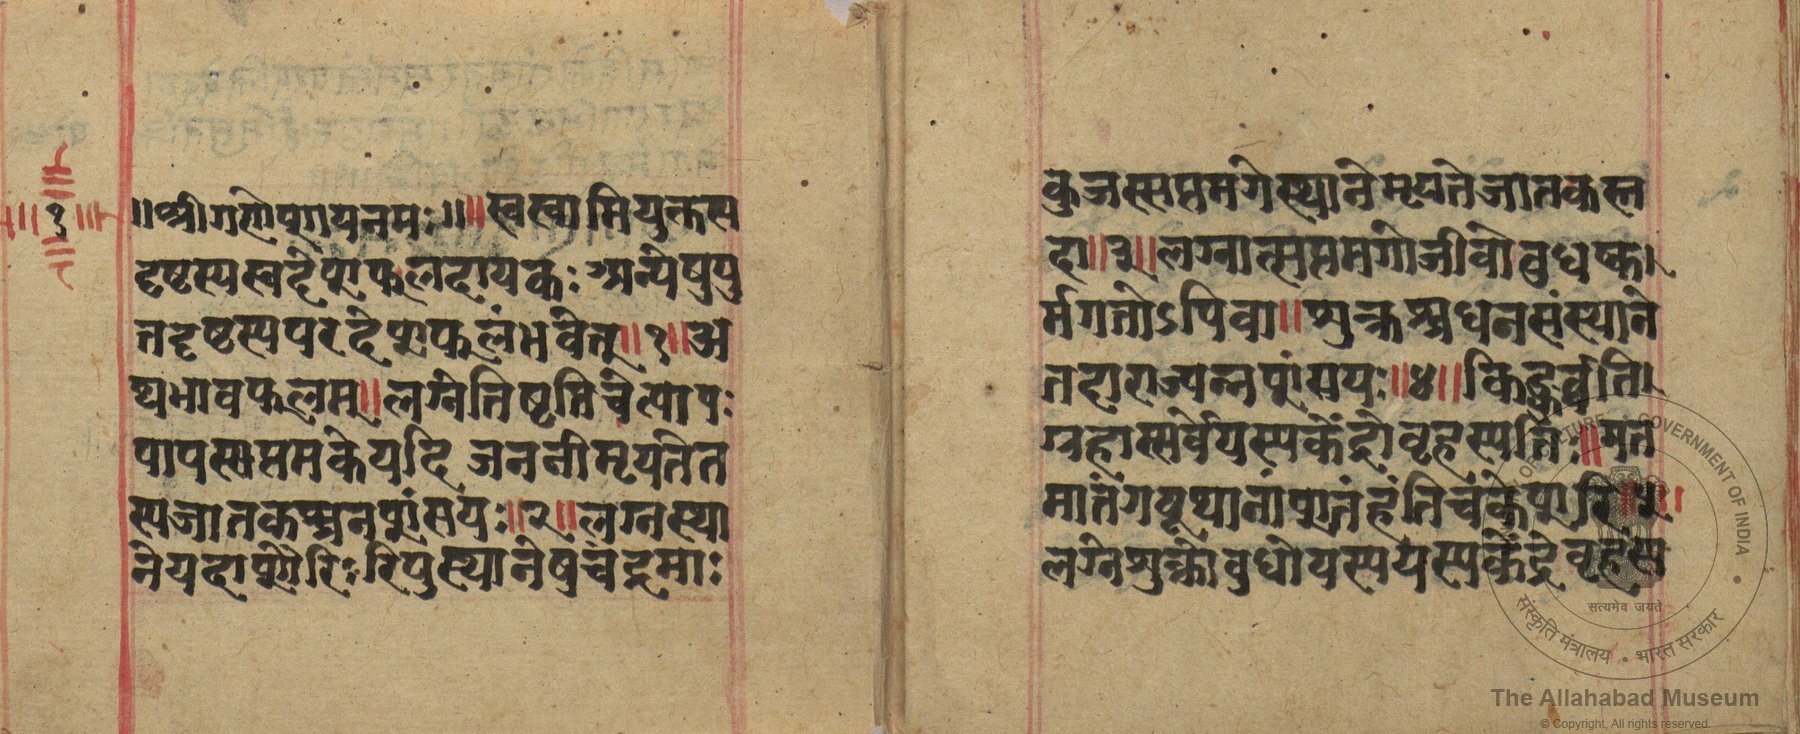 १
॥श्रीगणेशायनमः॥॥स्वस्वामियुक्तस
दृष्टस्यस्वदेशफलदायकः अन्येषुयु
तदृष्टस्यपरदेशफलंभवेत्॥१॥अ
थभावफलम्॥लग्नेतिष्ठतिचेत्पापः
पापसप्तमकेयदि जननीमृयतेत
स्यजातकश्चनशंसयः॥२॥लग्नस्था
नेयदाशौरिःरिपुस्थानेषुचंद्रमाः
कुजस्सप्तमगेस्थानेमृयतेजातकस्त
दा॥३॥लग्नात्सप्तमगोजीवोबुधष्क
र्मगतोऽपिवा॥शुक्रश्चधनसंस्थाने
तदाराज्यन्नशंसयः॥४॥किंकुर्वंति
ग्रहास्सर्वेयस्यकेंद्रोवृहस्पतिः॥मत
मातंगयूथानांशतंहंतिचकेशरि॥५॥
लग्नेशुक्रोवुधोयस्ययस्यकेंद्रेवृहस्प
MINISTRY OF CULTURE GOVERNMENT OF INDIA
सत्यमेव जयते
संस्कृति मंत्रालय • भारत सरकार
The Allahabad Museum
© Copyright, All rights reserved.